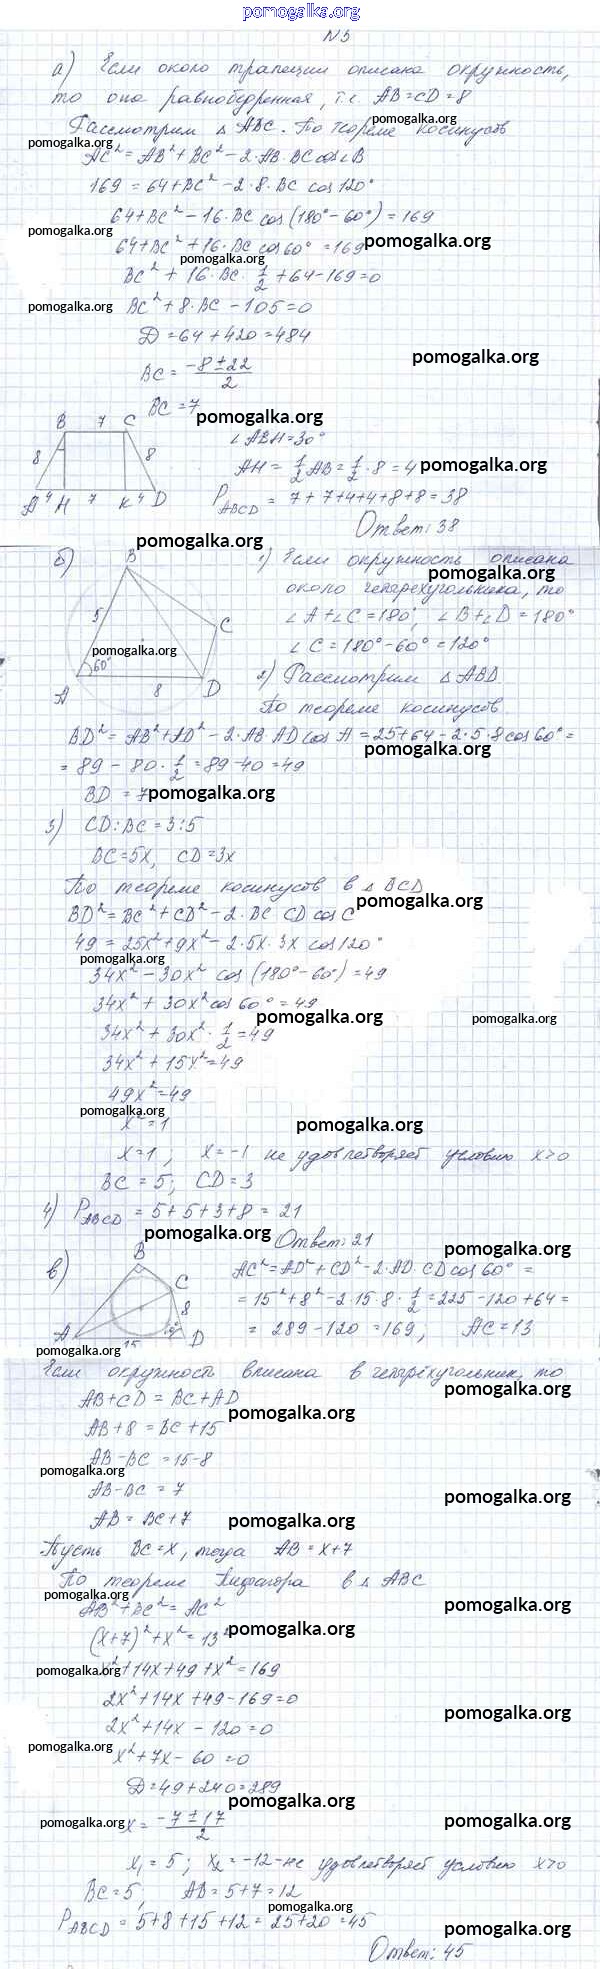 pomogalka.org
N 3
а) Если около трапеции описана окружность,
то она равнобедренная, т.е. AB=CD=8
pomogalka.org
Рассмотрим △ ABC. По теореме косинусов
pomogalka.org
AC² = AB² + BC² - 2·AB·BC cos∠B
169 = 64 + BC² - 2·8·BC cos 120°
64 + BC² - 16·BC cos (180° - 60°) = 169
pomogalka.org
64 + BC² + 16·BC cos 60° = 169 pomogalka.org
pomogalka.org
BC² + 16·BC·1/2 + 64 - 169 = 0
pomogalka.org BC² + 8·BC - 105 = 0
D = 64 + 420 = 484
pomogalka.org
BC = (-8 ± 22)/2
BC = 7
pomogalka.org
B 7 C
∠ABH = 30°
8 8
AH = 1/2 AB = 1/2 · 8 = 4 pomogalka.org
A 4 H 7 K 4 D
P ABCD = 7 + 7 + 4 + 4 + 8 + 8 = 38
Ответ: 38
pomogalka.org
б) B
1) Если окружность описана
pomogalka.org
около четырехугольника, то
5 C
∠A + ∠C = 180°, ∠B + ∠D = 180°
pomogalka.org
∠C = 180° - 60° = 120°
60°
A 8 D
2) Рассмотрим △ ABD
По теореме косинусов
BD² = AB² + AD² - 2·AB·AD cos A = 25 + 64 - 2·5·8 cos 60° =
pomogalka.org
= 89 - 80·1/2 = 89 - 40 = 49
BD = 7 pomogalka.org
3) CD:BC = 3:5
BC = 5x, CD = 3x
По теореме косинусов в △ BCD
pomogalka.org
BD² = BC² + CD² - 2·BC·CD cos C
49 = 25x² + 9x² - 2·5x·3x cos 120°
pomogalka.org
34x² - 30x² cos (180° - 60°) = 49
34x² + 30x² cos 60° = 49
pomogalka.org pomogalka.org
34x² + 30x²·1/2 = 49
34x² + 15x² = 49
49x² = 49
pomogalka.org
x² = 1 pomogalka.org
x = 1; x = -1 не удовлетворяет условию x>0
BC = 5; CD = 3
4) P ABCD = 5 + 5 + 3 + 8 = 21
pomogalka.org
Ответ: 21
pomogalka.org
в) B
AC² = AD² + CD² - 2·AD·CD cos 60° =
C
8
= 15² + 8² - 2·15·8·1/2 = 225 - 120 + 64 =
A 15 60° D
= 289 - 120 = 169; AC = 13
pomogalka.org
Если окружность вписана в четырехугольник, то
pomogalka.org
AB + CD = BC + AD
pomogalka.org
AB + 8 = BC + 15
AB - BC = 15 - 8
pomogalka.org
AB - BC = 7
pomogalka.org
AB = BC + 7 pomogalka.org
Пусть BC = x, тогда AB = x + 7
По теореме Пифагора в △ ABC
pomogalka.org
AB² + BC² = AC² pomogalka.org
(x+7)² + x² = 13² pomogalka.org
pomogalka.org
x² + 14x + 49 + x² = 169
2x² + 14x + 49 - 169 = 0
pomogalka.org
2x² + 14x - 120 = 0
pomogalka.org
x² + 7x - 60 = 0
D = 49 + 240 = 289
pomogalka.org
pomogalka.org x = (-7 ± 17)/2 pomogalka.org
x₁ = 5; x₂ = -12 - не удовлетворяет условию x>0
BC = 5; AB = 5 + 7 = 12
pomogalka.org
P ABCD = 5 + 8 + 15 + 12 = 25 + 20 = 45
pomogalka.org
Ответ: 45